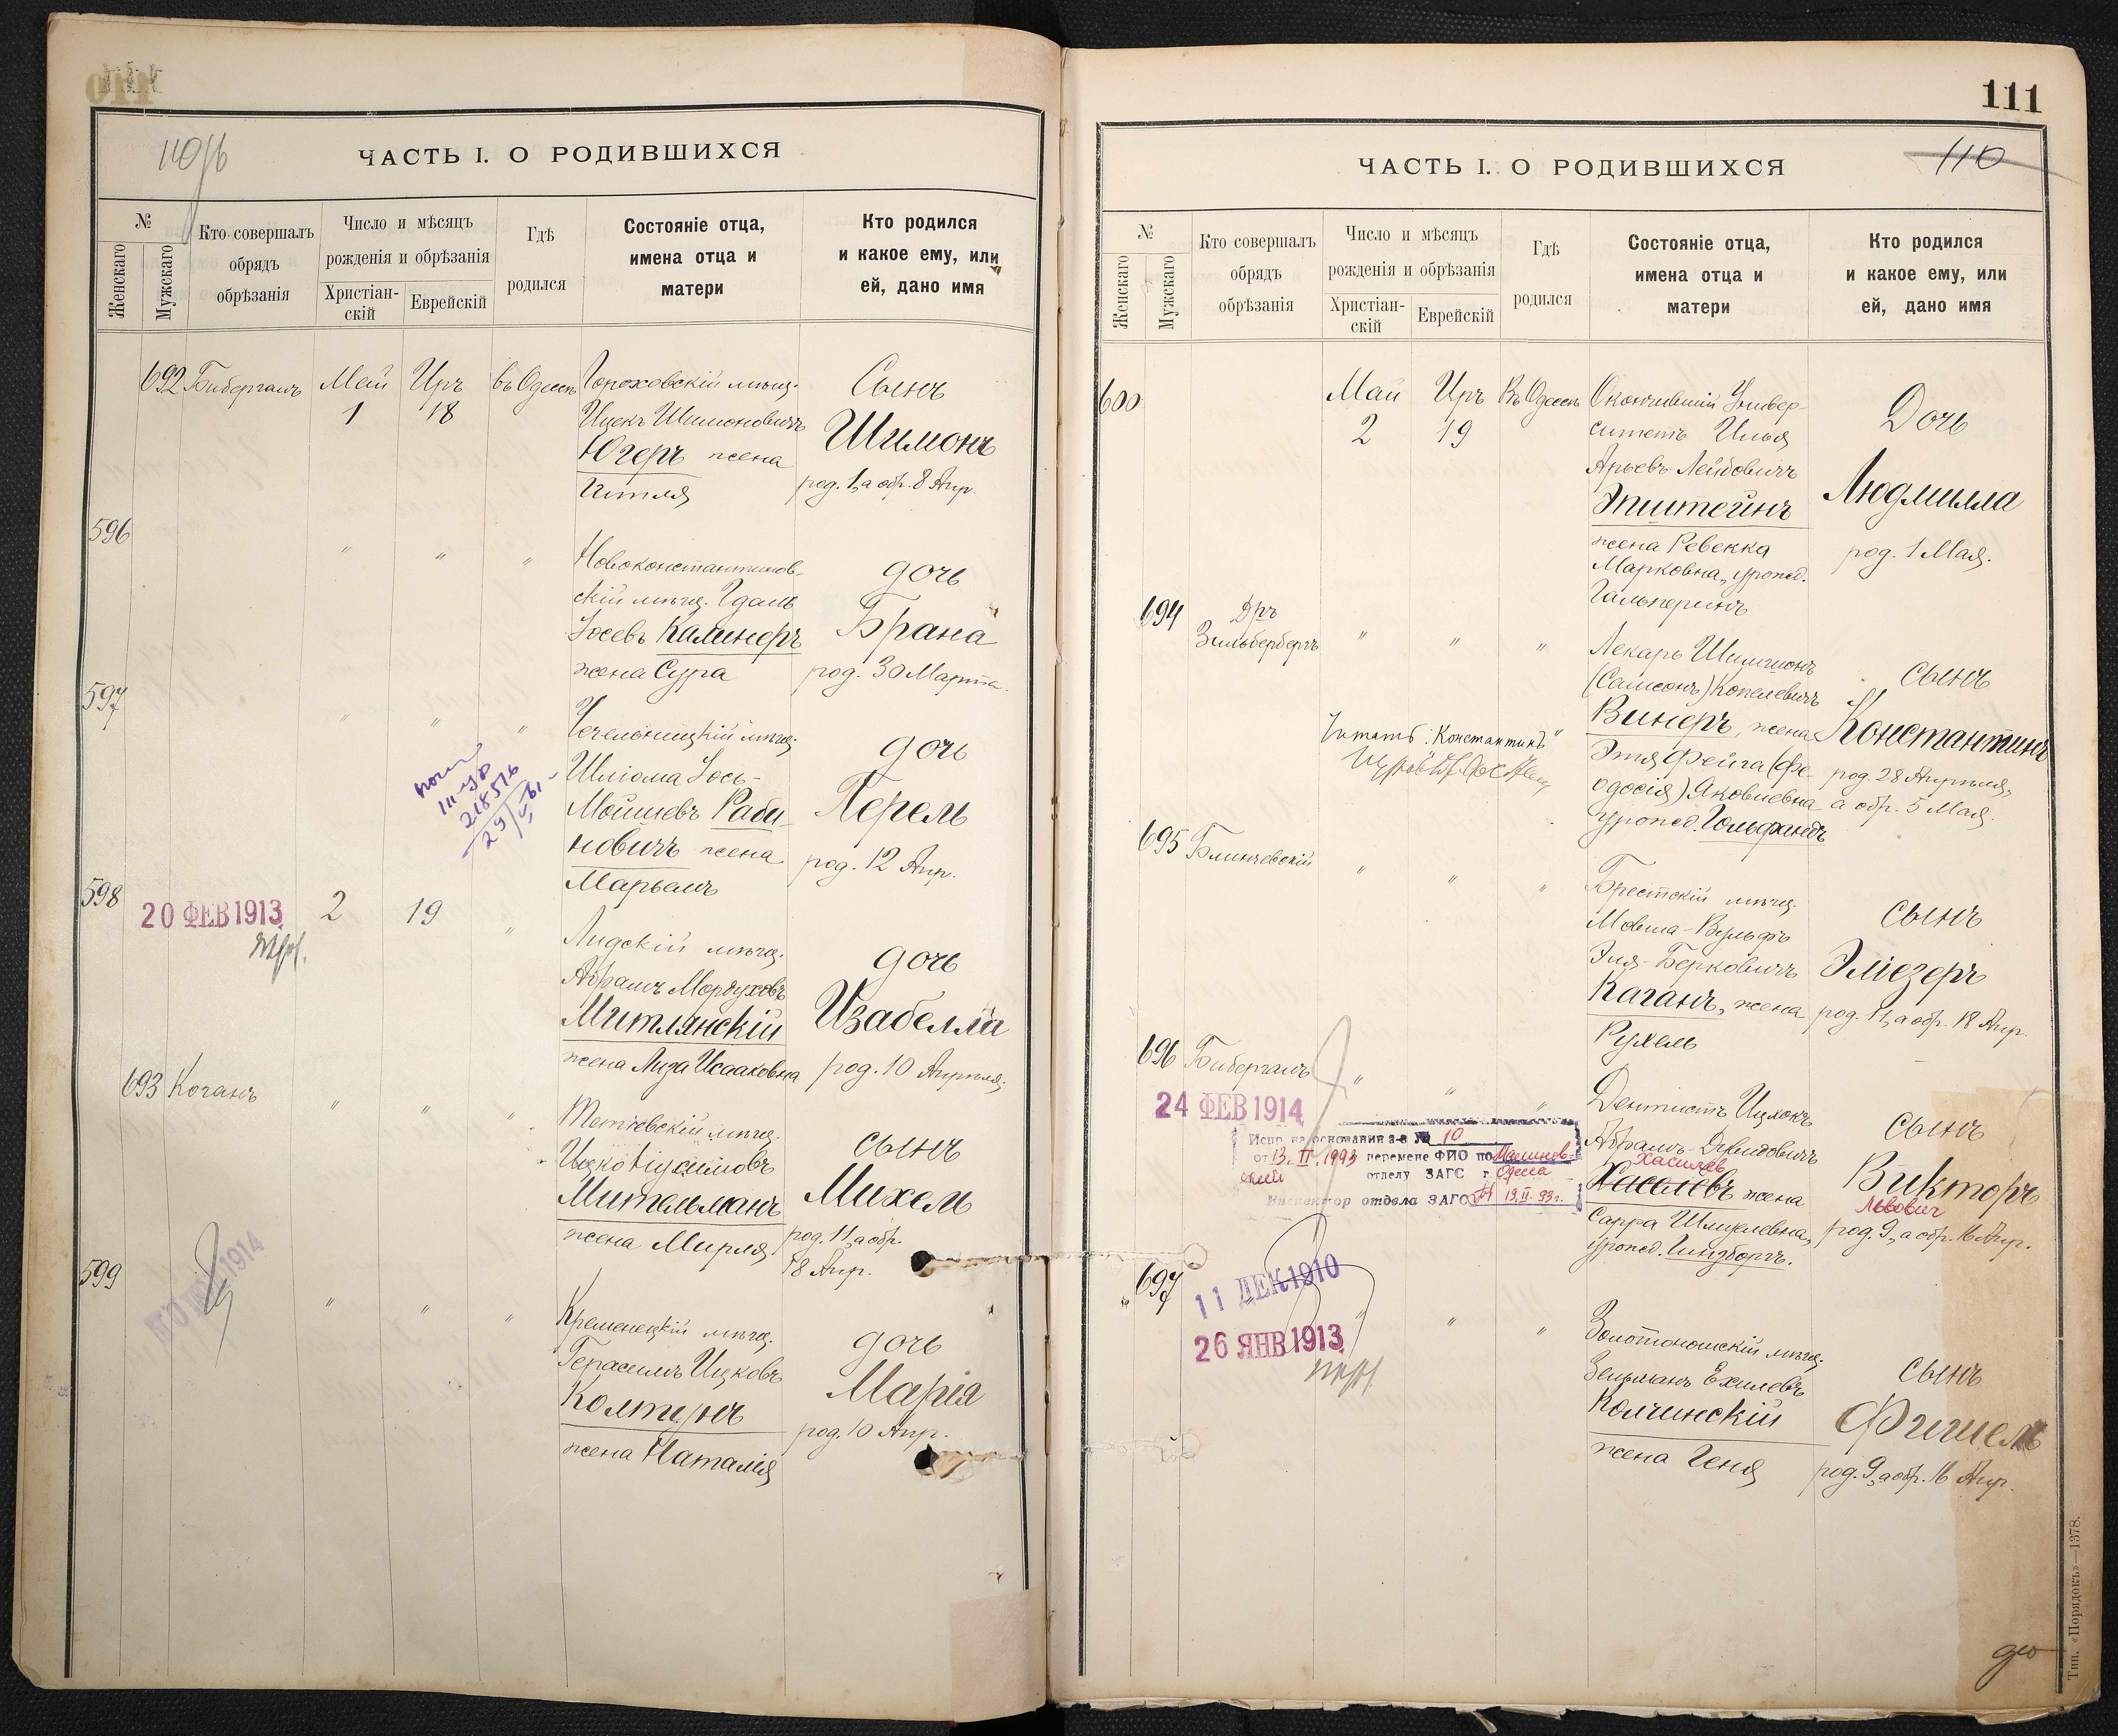 110
ЧАСТЬ I. О РОДИВШИХСЯ
№
Женскаго
Мужскаго
Кто совершалъ
обрядъ
обрѣзанія
Число и мѣсяцъ
рожденія и обрѣзанія
Христіан-
скій
Еврейскій
Гдѣ
родился
Состояніе отца,
имена отца и
матери
Кто родился
и какое ему, или
ей, дано имя
692
Бибергалъ
Май
1
Iиръ
18
въ Одессѣ
Гороховскій мѣщ.
Ицекъ Шимоновичъ
Югеръ жена
Гитля
Сынъ
Шимонъ
род. 1, а обр. 8 Апр.
596
"
"
"
Новоконстантинов-
скій мѣщ. Гдаль
Іосевъ Калинеръ
жена Сура
дочь
Брана
род. 30 Марта.
597
"
"
"
218516
Чечельницкій мѣщ.
Шліома Іось-
Мойшевъ Раби-
новичъ жена
Марьемъ
дочь
Перель
род. 12 Апр.
598
20 ФЕВ 1913
2
19
"
Лидскій мѣщ.
Абрамъ Мордуховъ
Митлянскій
жена Лиза Исааковна
дочь
Изабелла
род. 10 Апрѣля.
693
Коганъ
"
"
"
Тетіевскій мѣщ.
Ицко
Мительманъ
жена Мирля
сынъ
Михель
род. 11, а обр.
18 Апр.
599
1914
"
"
"
Кременецкій мѣщ.
Герасимъ Ицковъ
Колтунъ
жена Наталія
дочь
Марія
род. 10 Апр.
111
110
ЧАСТЬ I. О РОДИВШИХСЯ
№
Женскаго
Мужскаго
Кто совершалъ
обрядъ
обрѣзанія
Число и мѣсяцъ
рожденія и обрѣзанія
Христіан-
скій
Еврейскій
Гдѣ
родился
Состояніе отца,
имена отца и
матери
Кто родился
и какое ему, или
ей, дано имя
600
Май
2
Iиръ
19
Въ Одессѣ
Окончившій Универ-
ситетъ Илья
Арьевъ-Лейбовичъ
Эпштейнъ
жена Ревекка
Марковна, урожд.
Гальперинъ
Дочь
Людмилла
род. 1 Мая.
694
Д-ръ
Зильбербергъ
"
"
"
Читать: "Константинъ"
Лекарь Шимшонъ
(Самсонъ) Копелевичъ
Винеръ, жена
Этя Фейга (Фе-
одосія) Яковлевна
урожд. Гольфандъ
сынъ
Константинъ
род. 28 Апрѣля,
а обр. 5 Мая.
695
Блинчевскій
"
"
"
Брестскій мѣщ.
Мовша-Вульфъ
Эля-Берковичъ
Каганъ, жена
Рухель
сынъ
Эліезеръ
род. 11, а обр. 18 Апр.
696
Бибергалъ
"
"
"
24 ФЕВ 1914
Испр на основании з-в № 10
от 13. II. 1993 перемене ФИО по Малинов-
ский отделу ЗАГС г Одесса
Инспектор отдела ЗАГС 13.II.93г.
Дентистъ Ицхокъ
Абрамъ-Давидовичъ
Хасилев
Хасилевъ жена
Сарра Шмулевна,
урожд. Гинзборгъ.
сынъ
Викторъ
Львович
род. 9, а обр. 16 Апр.
697
11 ДЕК 1910
26 ЯНВ 1913
"
"
"
Золотоношскій мѣщ.
Зельманъ Ехилевъ
Колчинскій
жена Геня
сынъ
Фишель
род. 9, а обр. 16 Апр.
Тип. «Порядокъ»—1378.